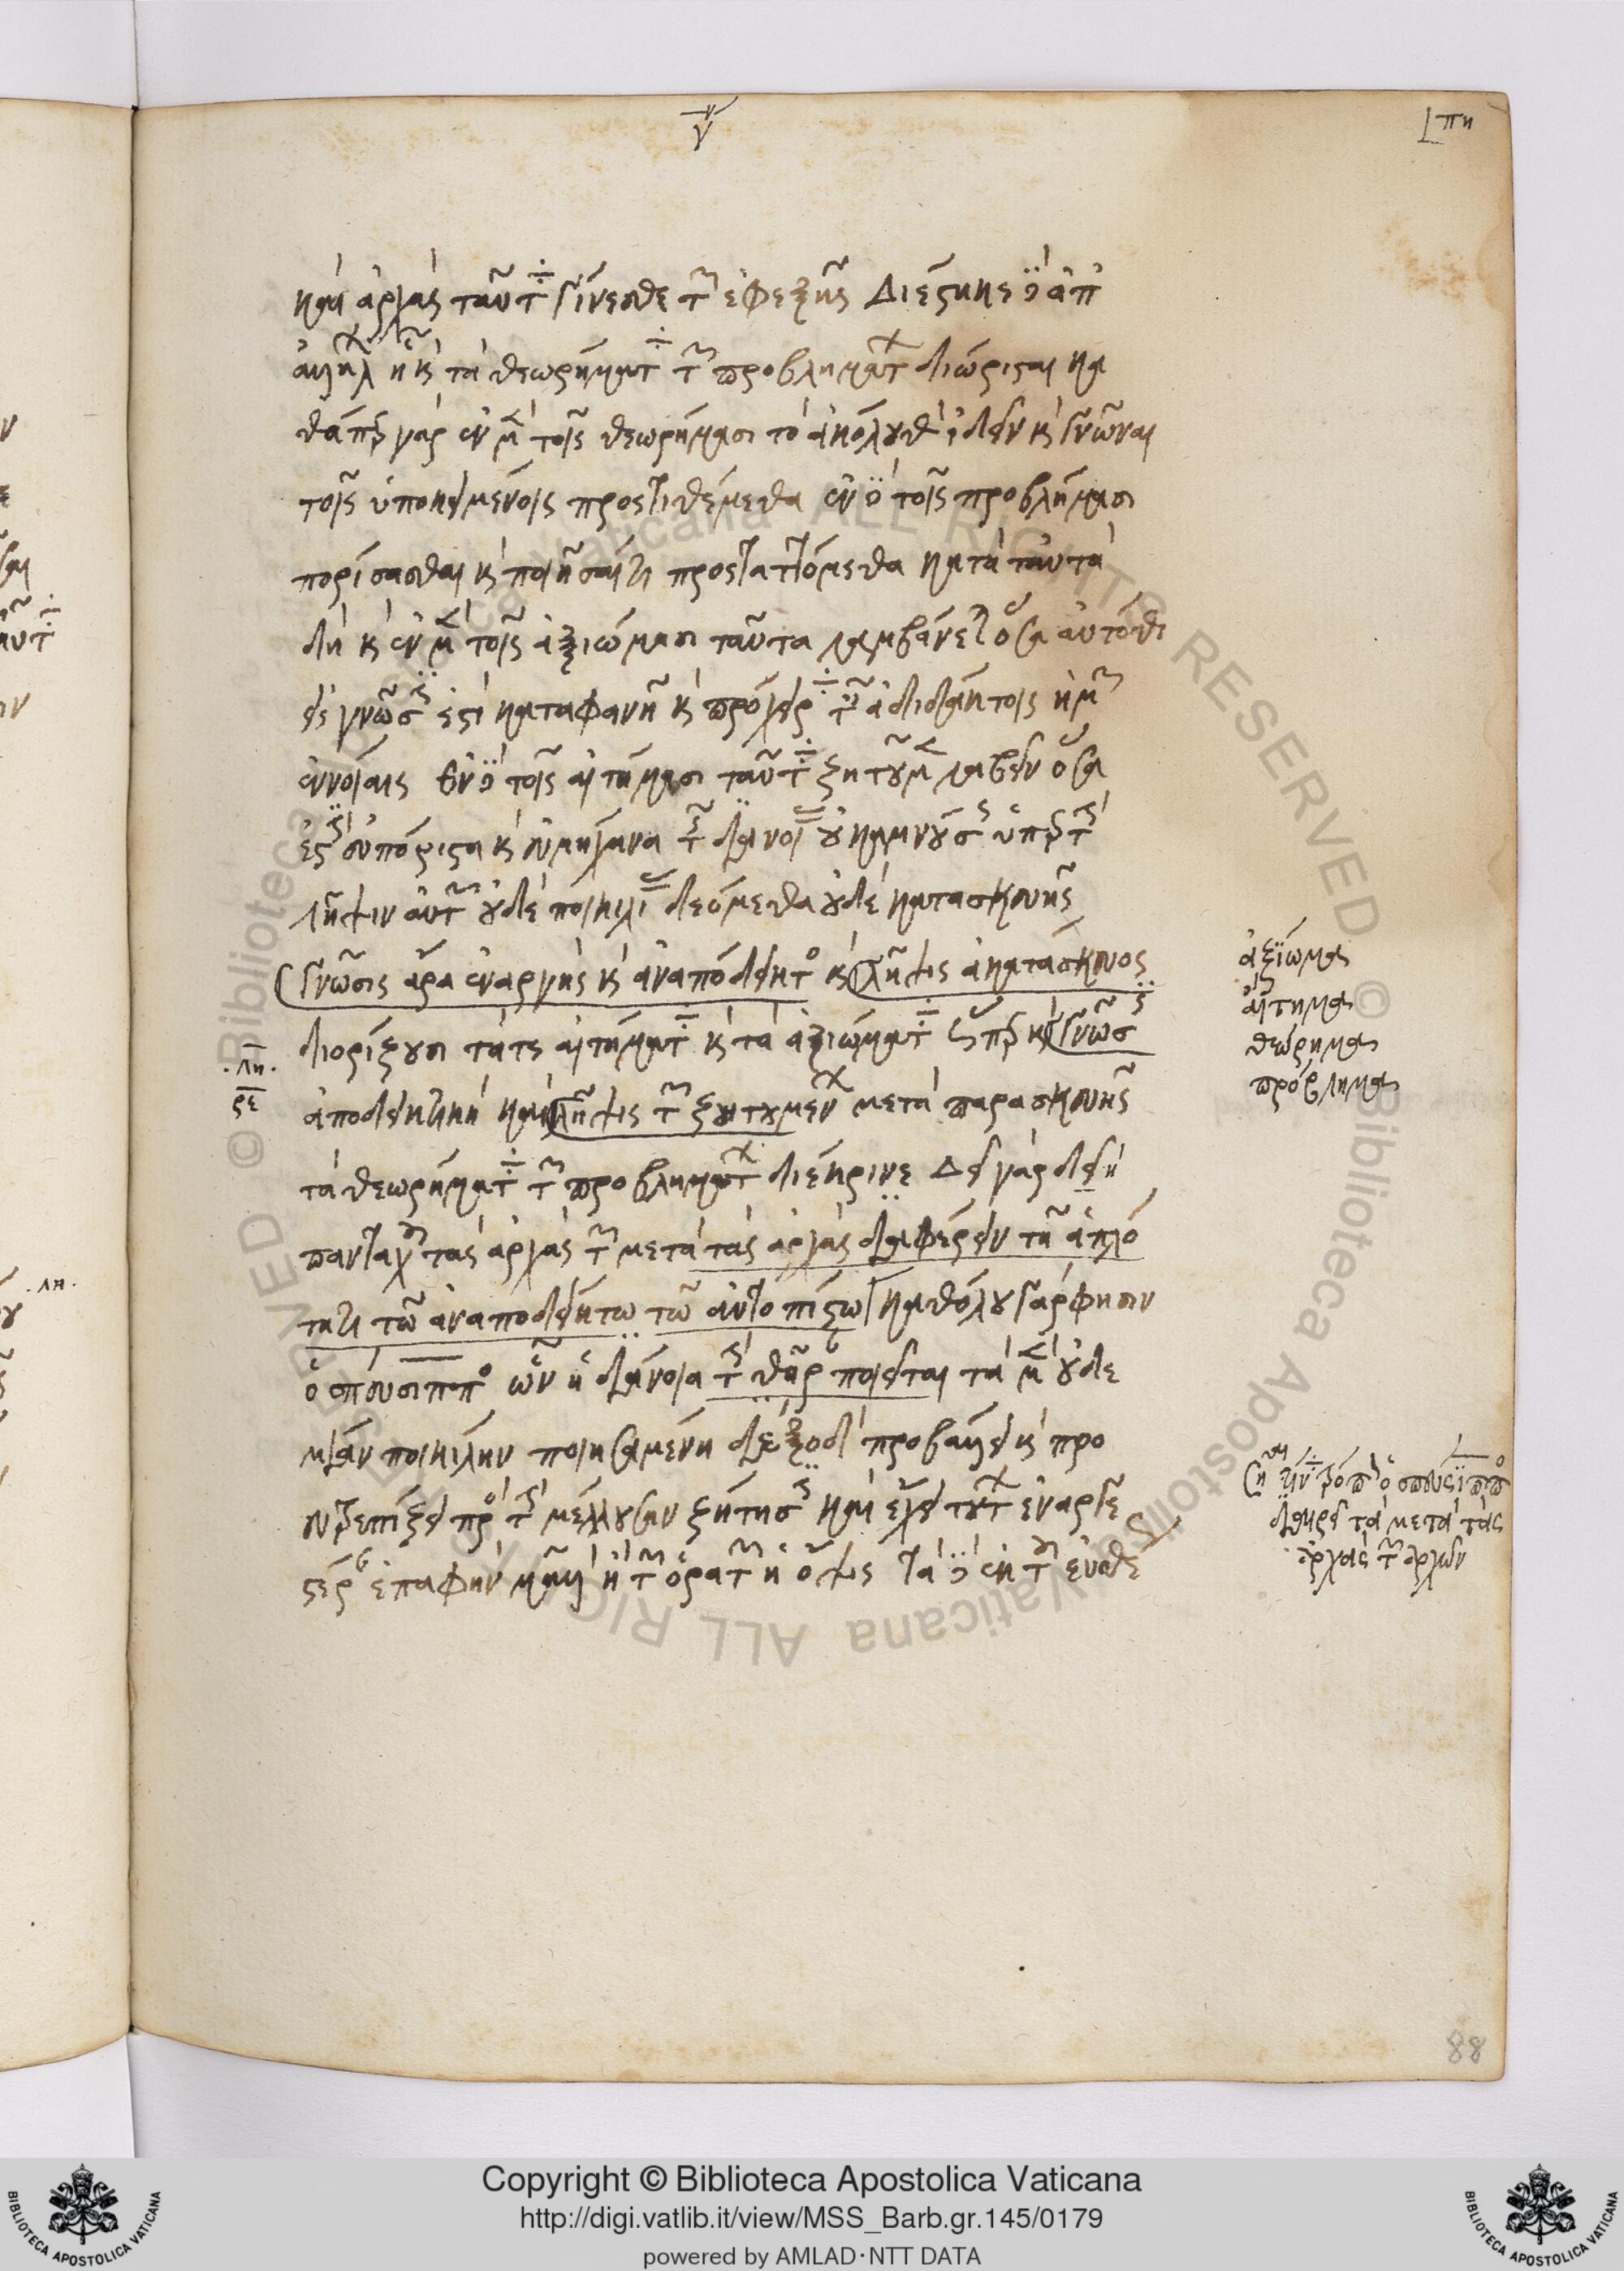 γ
πη
καὶ ἀρχὰς ταῦτα γίνεσθαι τῶν ἐφεξῆς Διέστηκε δὲ ἀπ
ἀλλήλων ᾗ καὶ τὰ θεωρήματα τῶν προβλημάτων διώρισται κα
θάπερ γὰρ ἐν μὲν τοῖς θεωρήμασι τὸ ἀκόλουθον ἰδεῖν καὶ γνῶναι
τοῖς ὑποκειμένοις προστιθέμεθα ἐν δὲ τοῖς προβλήμασι
πορίσασθαι καὶ ποιῆσαί τι προσταττόμεθα κατὰ ταὐτὰ
δὴ καὶ ἐν μὲν τοῖς ἀξιώμασι ταῦτα λαμβάνεται ὅσα αὐτόθι
εἰς γνῶσίν ἐστι καταφανῆ καὶ πρόχειρα ταῖς ἀδιδάκτοις ἡμῶν
ἐννοίαις Ἐν δὲ τοῖς αἰτήμασι ταῦτα ζητοῦμεν λαβεῖν ὅσα
ἐστὶν εὐπόριστα καὶ εὐμήχανα τῆς διανοίας οὐ καμνούσης ὑπὲρ τὴν
λῆψιν αὐτῶν οὐδὲ ποικιλίας δεόμεθα οὐδὲ κατασκευῆς
γνῶσις ἄρα ἐναργὴς καὶ ἀναπόδεικτος καὶ λῆψις ἀκατάσκευος
διορίζουσι τά τε αἰτήματα καὶ τὰ ἀξιώματα ὥσπερ καὶ γνῶσις
ἀποδεικτικὴ καὶ λῆψις τῶν ζητουμένων μετὰ παρασκευῆς
τὰ θεωρήματα τῶν προβλημάτων διέκρινε Δεῖ γὰρ δεῖ
πανταχοῦ τὰς ἀρχὰς τῶν μετὰ τὰς ἀρχὰς διαφέρειν τῇ ἁπλό
τητι τῷ ἀναποδείκτῳ τῷ αὐτοπίστῳ καθόλου γάρ φησιν
ὁ σπεύσιππος ὧν ἡ διάνοια τὴν θήραν ποιεῖται τὰ μὲν οὐδε
μίαν ποικίλην ποιησαμένη διέξοδον προβάλλει καὶ προ
ευτρεπίζει πρὸς τὴν μέλλουσαν ζήτησιν καὶ ἔχει τούτων ἐναργε
στέραν ἐπαφὴν μᾶλλον ἢ τῶν ὁρατῶν ἡ ὄψις Τὰ δὲ ἐκ τοῦ εὐθέ
ἀξίωμα
αἴτημα
θεώρημα
πρόβλημα
λη
ρε
λη
διαιρεῖ τὰ μετὰ τὰς
ἀρχὰς τῶν ἀρχῶν
88
Copyright © Biblioteca Apostolica Vaticana
http://digi.vatlib.it/view/MSS_Barb.gr.145/0179
powered by AMLAD·NTT DATA